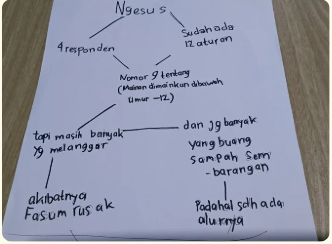 Ngesus
4 responden
Sudah ada
12 aturan
Nomor 9 tentang
(Mainan dimainkan dibawah
Umur -12)
tapi masih banyak
yg melanggar
dan jg banyak
yang buang
sampah sem
-barangan
akibatnya
Fasum rusak
Padahal sdh ada
alurnya